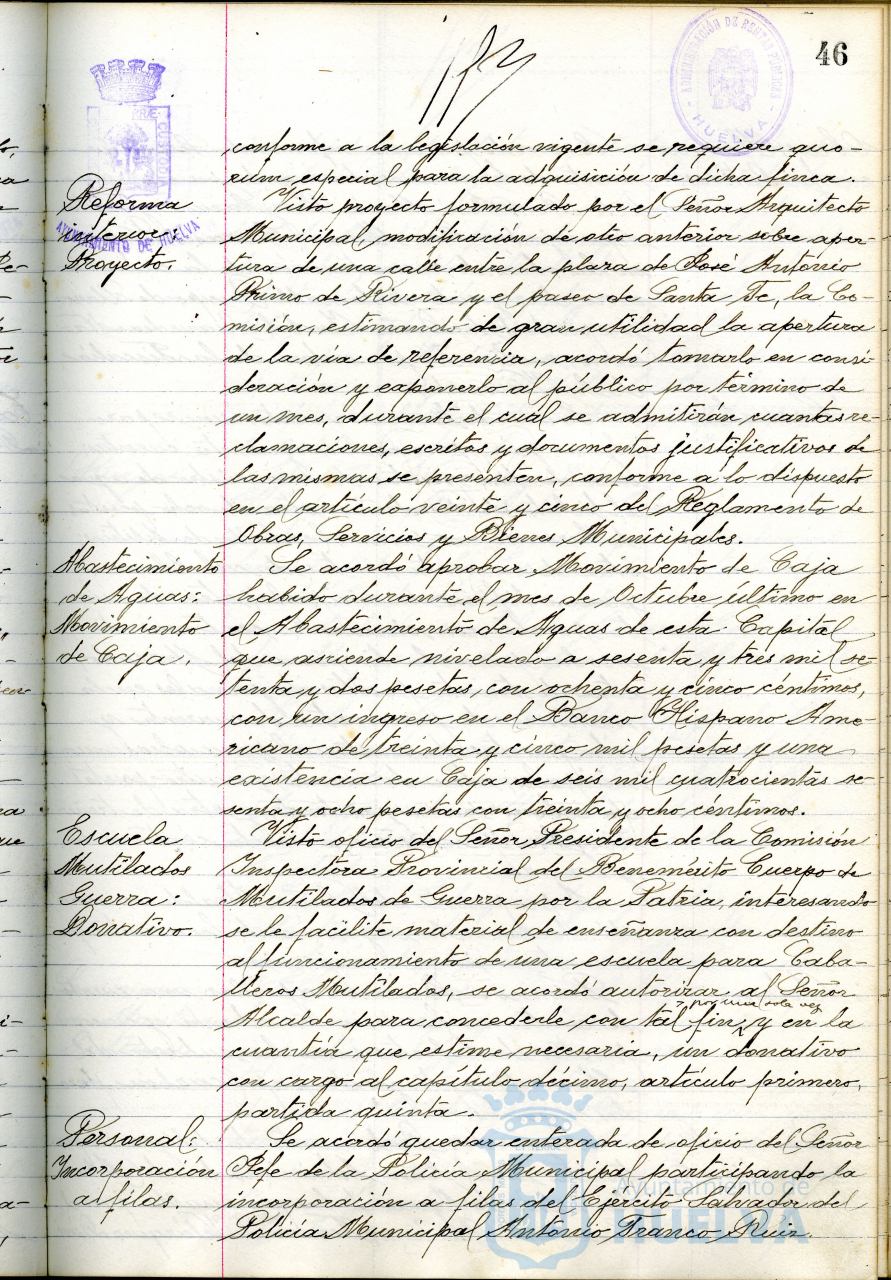 46
ADMINISTRACIÓN DE RENTAS PÚBLICAS
HUELVA
AYUNTAMIENTO DE HUELVA
conforme a la legislación vigente se requiere quo-
rúm especial para la adquisición de dicha finca.
Reforma
interior:
Proyecto.
Visto proyecto formulado por el Señor Arquitecto
Municipal, modificación de otro anterior sobre aper-
tura de una calle entre la plaza de José António
Primo de Rivera y el paseo de Santa Fe, la Co-
misión, estimando de gran utilidad la apertura
de la vía de referencia, acordó tomarlo en consi-
deración y exponerlo al público por término de
un mes, durante el cual se admitirán cuantas re-
clamaciones, escritos y documentos justificativos de
las mismas se presenten, conforme a lo dispuesto
en el artículo veinte y cinco del Reglamento de
Obras, Servicios y Bienes Municipales.
Abastecimiento
de Aguas:
Movimiento
de Caja.
Se acordó aprobar Movimiento de Caja
habido durante el mes de Octubre último en
el Abastecimiento de Aguas de esta Capital
que asciende nivelado a sesenta y tres mil se-
tenta y dos pesetas, con ochenta y cinco céntimos,
con un ingreso en el Banco Hispano Ame-
ricano de treinta y cinco mil pesetas y una
existencia en Caja de seis mil cuatrocientas se-
senta y ocho pesetas con treinta y ocho céntimos.
Escuela
Mutilados
Guerra:
Donativo.
Visto oficio del Señor Presidente de la Comisión
Inspectora Provincial del Benemérito Cuerpo de
Mutilados de Guerra por la Patria, interesando
se le facilite material de enseñanza con destino
al funcionamiento de una escuela para Caba-
lleros Mutilados, se acordó autorizar al Señor
, por una sola vez
Alcalde para concederle con tal fin y en la
cuantía que estime necesaria, un donativo
con cargo al capítulo décimo, artículo primero,
partida quinta.
Personal:
Incorporación
a filas.
Se acordó quedar enterada de oficio del Señor
Jefe de la Policía Municipal participando la
incorporación a filas del Ejército Salvador del
Policía Municipal António Franco Ruiz.
Ayuntamiento de
HUELVA